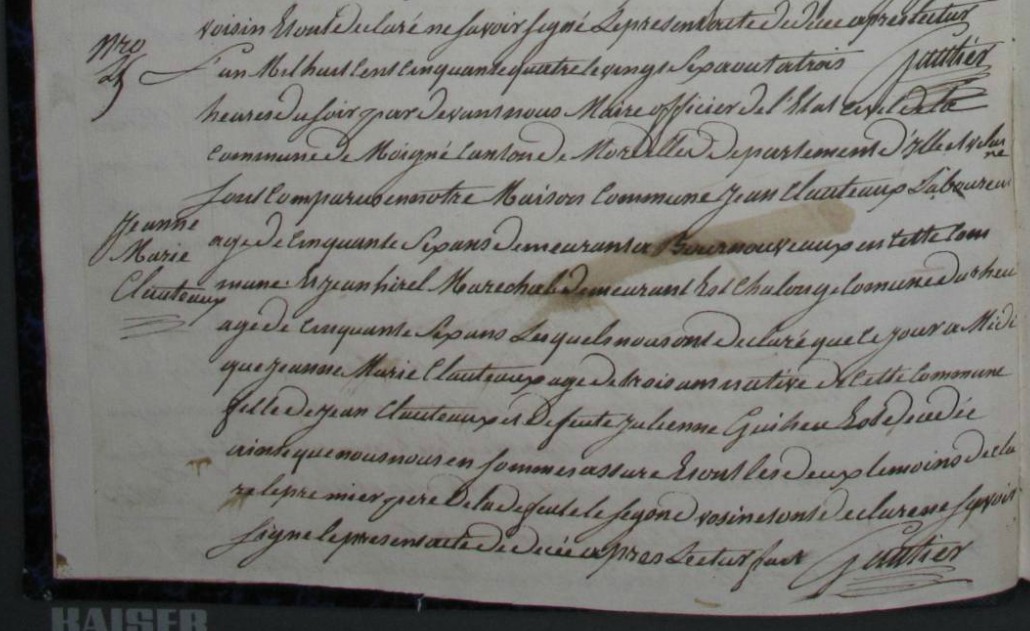 voisin Et ont declaré ne savoir signé Le present acte de décé apres lectur
Gautier
Nro
25
L'an Mil huit Cent Cinquante quatre le vingt Six aout a trois
heures du soir par devant nous Maire officier de l'Etat civil de la
Commune de Moigné Canton de Mordelles Departement d'ille et vilaine
sont Comparus en notre Maison Commune Jean Clauteaux Laboureur
Jeanne
Marie
Clauteaux
age de Cinquante Six ans demeurant a Bournouveaux en Cette Com
mune Et jean hirel Marechal demeurant Est Chalonge Comune du rheu
age de Cinquante Six ans Lesquels nous ont declaré que Ce jour a Midi
que jeanne Marie Clauteaux age de trois ans native de Cette Commune
fille de jean Clauteaux et defeute julienne Guiheu Est decedée
ainse que nous nous en sommes assure Et ont les deux temoins decla
re le premier pere de la defeute le segond vosin et ont declare ne savoir
signe le present acte de décé apres Lectur fait
Gautier
KAISER